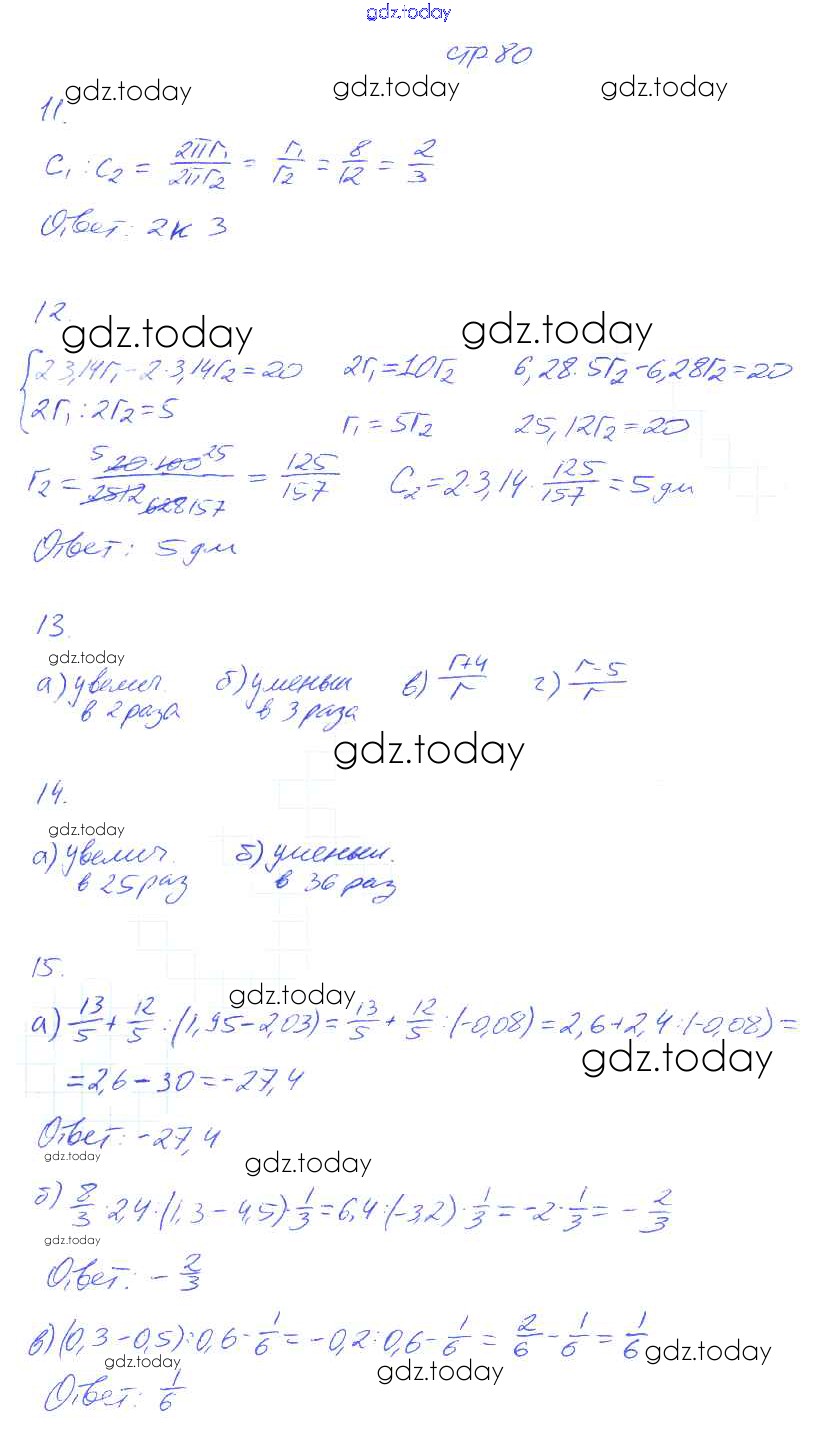 gdz.today
стр 80
gdz.today gdz.today gdz.today
11.
C₁ : C₂ = 2πr₁/2πr₂ = r₁/r₂ = 8/12 = 2/3
Ответ: 2 к 3
12.
gdz.today gdz.today
{2·3,14r₁ - 2·3,14r₂ = 20 2r₁ = 10r₂ 6,28·5r₂ - 6,28r₂ = 20
2r₁ : 2r₂ = 5 r₁ = 5r₂ 25,12r₂ = 20
r₂ = 5 20·100 25/2512 628 157 = 125/157 C₂ = 2·3,14·125/157 = 5 дм
Ответ: 5 дм
13.
gdz.today
а) увелич. б) уменьш в) r+4/r г) r-5/r
в 2 раза в 3 раза
gdz.today
14.
gdz.today
а) увелич. б) уменьш.
в 25 раз в 36 раз
15.
gdz.today
а) 13/5 + 12/5 : (1,95 - 2,03) = 13/5 + 12/5 : (-0,08) = 2,6 + 2,4 : (-0,08) =
gdz.today
= 2,6 - 30 = -27,4
Ответ: -27,4
gdz.today gdz.today
б) 8/3 · 2,4 : (1,3 - 4,5) · 1/3 = 6,4 : (-3,2) · 1/3 = -2 · 1/3 = - 2/3
gdz.today
Ответ: - 2/3
в) (0,3 - 0,5) : 0,6 - 1/6 = -0,2 : 0,6 - 1/6 = 2/6 - 1/6 = 1/6
gdz.today gdz.today gdz.today
Ответ: 1/6